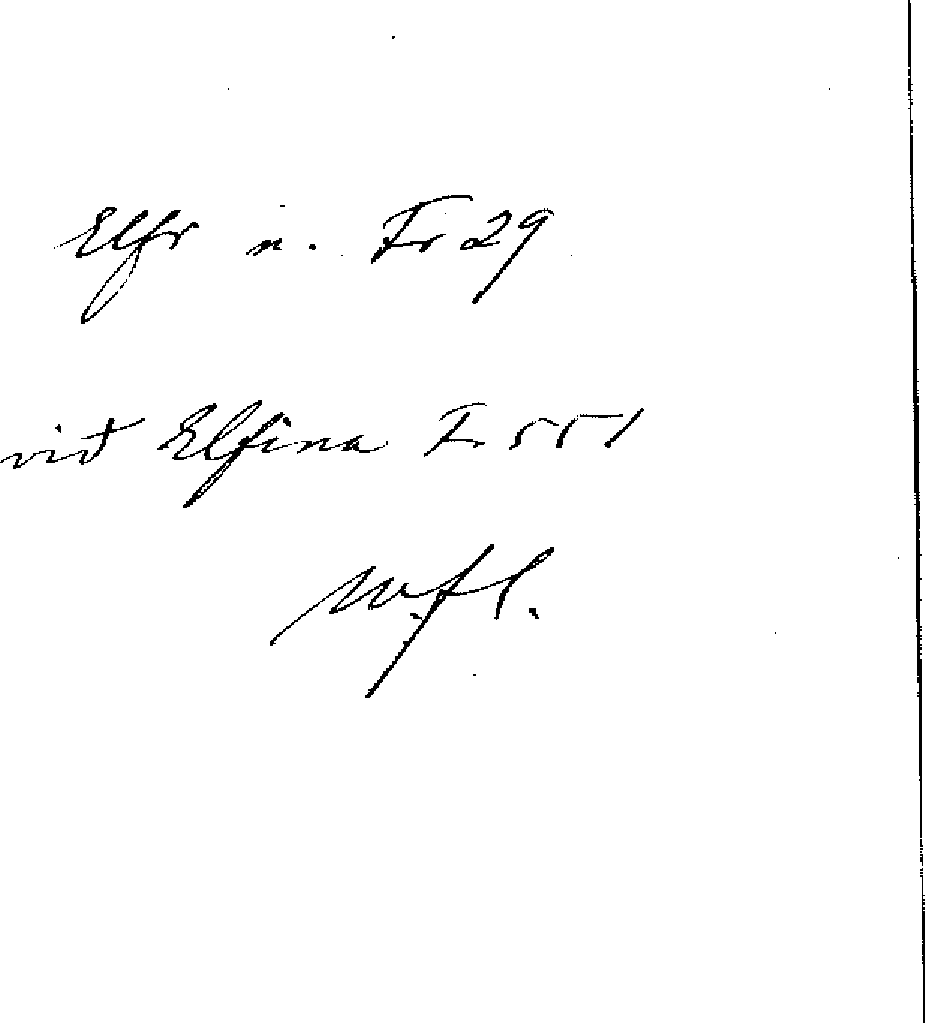 Elfr n. Fr 29
vid Elfina Fr 551
m.fl.